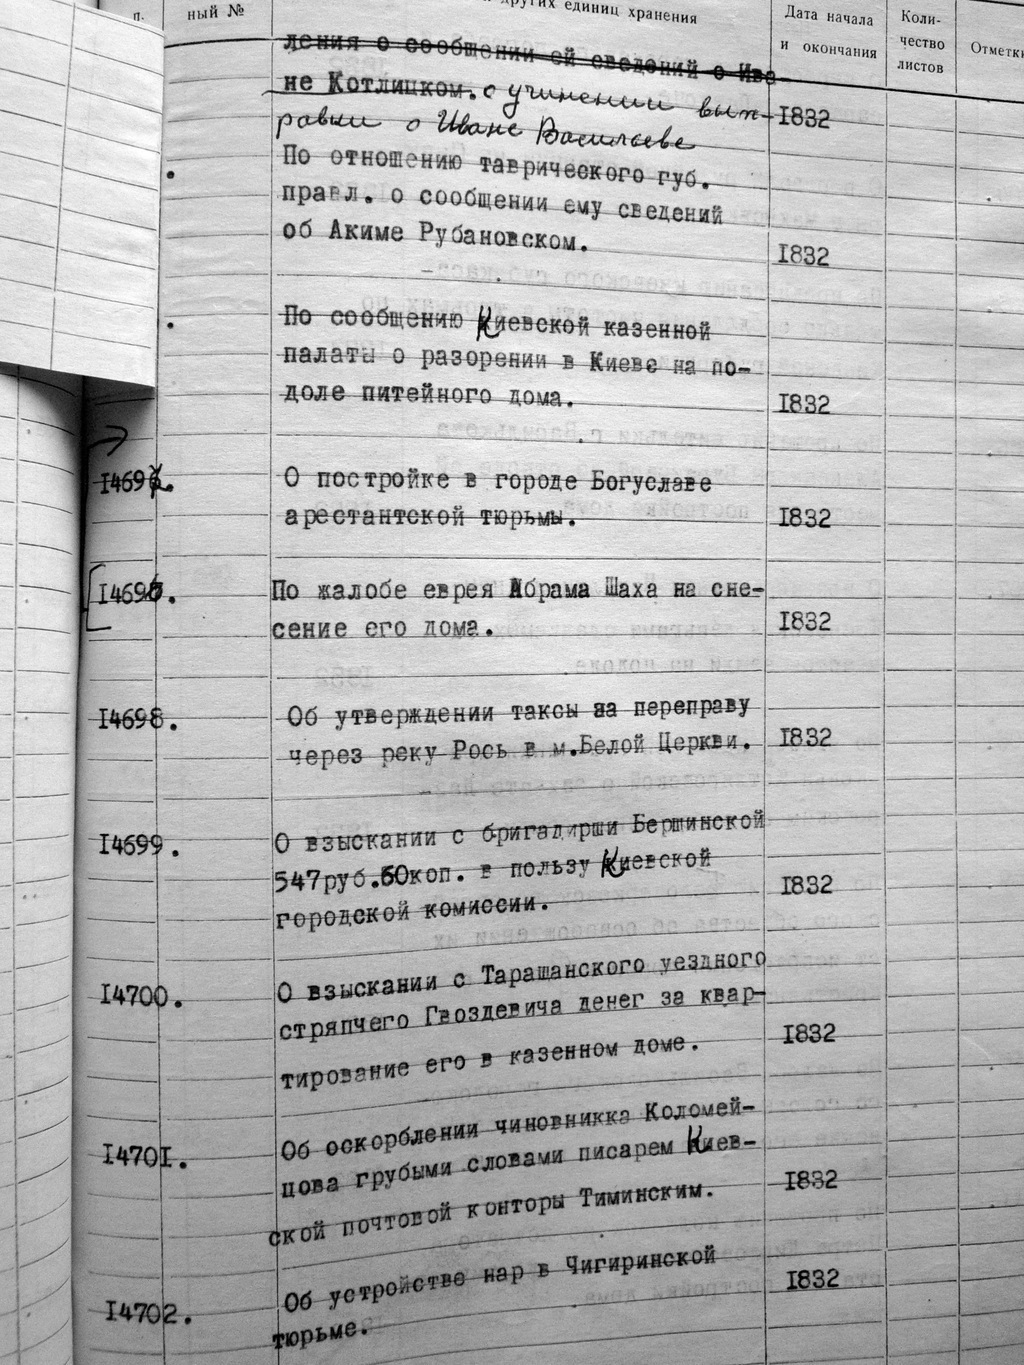 п.
ный №
других единиц хранения
Дата начала
и окончания
Коли-
чество
листов
Отметки
ления о сообщении ей сведений о Ива-
не Котлицком. о учинении вып-
равки о Иване Васильеве
1832
По отношению таврического губ.
правл. о сообщении ему сведений
об Акиме Рубановском.
1832
По сообщению Киевской казенной
палаты о разорении в Киеве на по-
доле питейного дома.
1832
1469
О постройке в городе Богуславе
арестантской тюрьмы.
1832
1469
По жалобе еврея Абрама Шаха на сне-
сение его дома.
1832
14698.
Об утверждении таксы за переправу
через реку Рось в м.Белой Церкви.
1832
14699.
О взыскании с бригадирши Бершинской
547руб.60коп. в пользу Киевской
городской комиссии.
1832
14700.
О взыскании с Таращанского уездного
стряпчего Гвоздевича денег за квар-
тирование его в казенном доме.
1832
14701.
Об оскорблении чиновникка Коломей-
цова грубыми словами писарем Киев-
ской почтовой конторы Тиминским.
1832
14702.
Об устройстве нар в Чигиринской
тюрьме.
1832